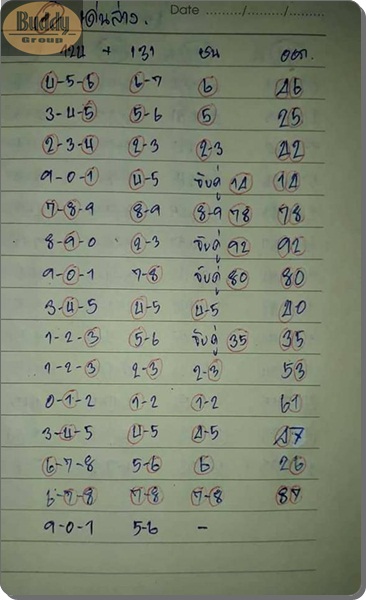 Buddy Group
เด่นล่าง.
Date ....../....../......
+ 131 ชน ออก.
4-5-6 6-7 6 46
3-4-5 5-6 5 25
2-3-4 2-3 2-3 42
9-0-1 4-5 จับคู่ 14 14
7-8-9 8-9 8-9 78 78
8-9-0 2-3 จับคู่ 92 92
9-0-1 7-8 จับคู่ 80 80
3-4-5 4-5 4-5 40
1-2-3 5-6 จับคู่ 35 35
1-2-3 2-3 2-3 53
0-1-2 1-2 1-2 61
3-4-5 4-5 4-5 47
6-7-8 5-6 6 26
6-7-8 7-8 7-8 87
9-0-1 5-6 -